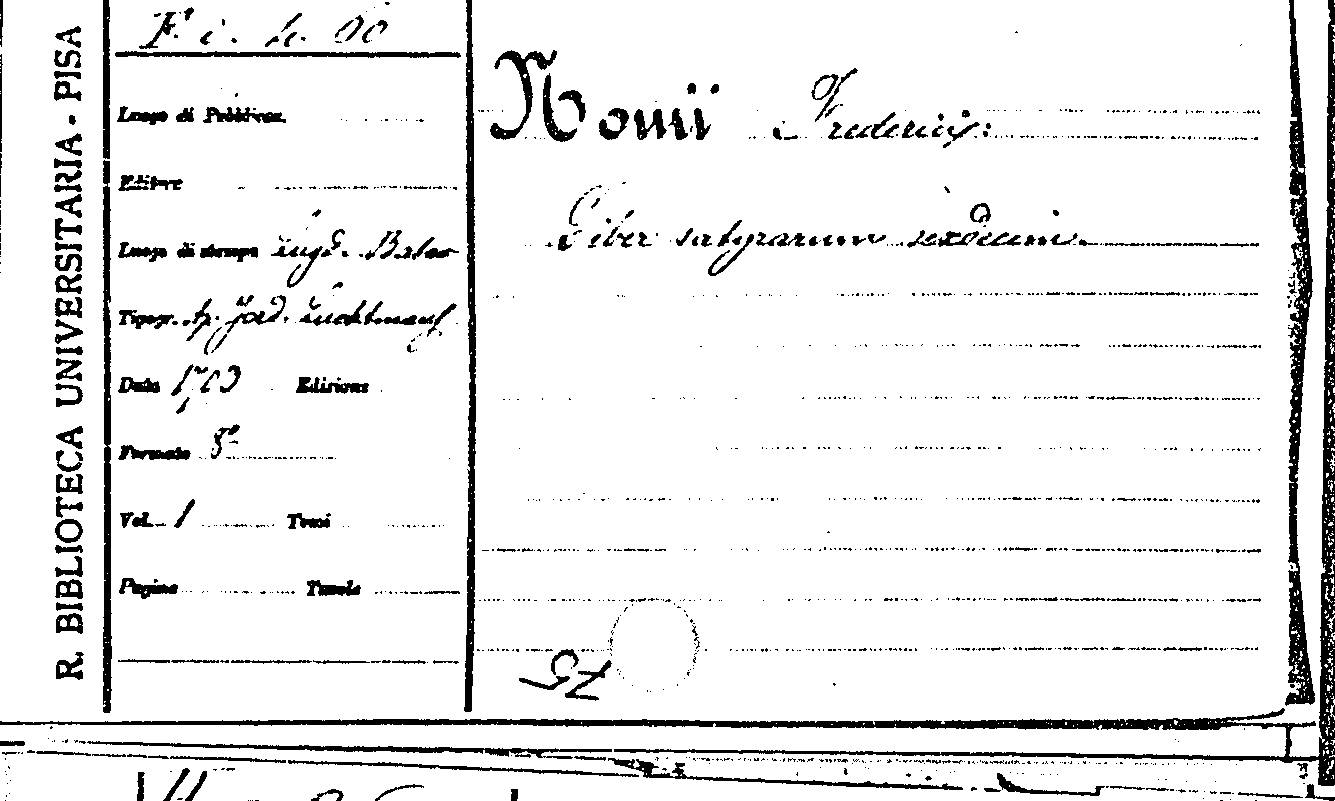 R. BIBLIOTECA UNIVERSITARIA - PISA
F i. 4. 60
Luogo di Pubblicaz.
Editore
Luogo di stampa Lugd. Batav
Tipogr. ap. Jord. Luchtmans
Data 1703 Edizione
Formato 8°
Vol. 1 Tomi
Pagine Tavole
Nomii Frederici:
Liber satyrarum sexdecim.